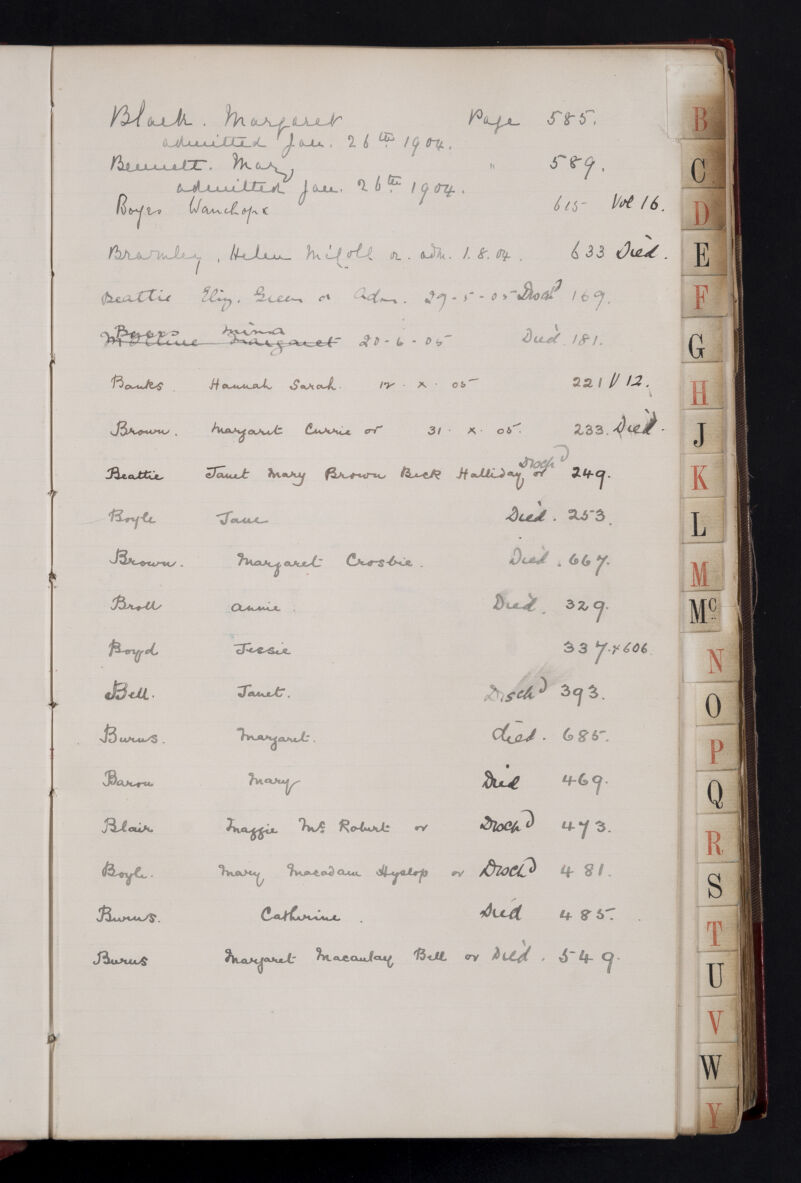 Black. Margaret Page 585.
admitted Jan. 26th 1904.
Bennett. Mary " 589.
admitted Jan. 26th 1904.
Boyes Wanchope 615 Vol 16.
Bramley, Helen or. adm. 1.8.04. 633 Died.
Beattie Eliz. Green or Adm. 29-5-05 Disch'd 169.
Byers Mina
Margaret 20-6-05 Died. 181.
Banks. Hannah Sarah. 12. x. 05 221 V 12.
Brown. Margaret Currie or 31. x. 05. 233. Died.
Beattie Janet Mary Brown Beck Halliday or Disch'd 249.
Boyle Jane Died. 253.
Brown. Margaret Crosbie. Died. 667.
Broll Annie. Died. 329.
Boyd Jessie 337. & 606.
Bell. Janet. Disch'd 393.
Burns. Margaret. died. 685.
Baron Mary Died 469.
Blair Maggie Mc Robert or Disch'd 473.
Boyle. Mary Macadam Hyslop or Disch'd 481.
Burns. Catherine. Died 485.
Burns Margaret Macaulay Bell or Died. 549.
B
C
D
E
F
G
H
J
K
L
M
Mc
N
O
P
Q
R
S
T
U
V
W
Y